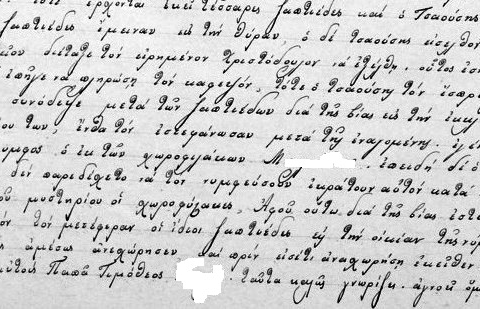 ἔρχονται ἐκεῖ τέσσαρες ζαπτιέδες καὶ ὁ Τσαούσης
ζαπτιέδες ἔμειναν εἰς τὴν θύραν, ὁ δὲ τσαούσης εἰσελθὼν
διέταξε τὸν εἰρημένον Χριστόδουλον νὰ ἐξέλθῃ. οὗτος
νὰ πληρώσῃ τὸν καφετζήν, τότε ὁ τσαούσης τὸν
συνόδευσε μετὰ τῶν ζαπτιέδων διὰ τῆς βίας εἰς τὴν
των, ἔνθα τὸν ἐστεφάνωσαν μετὰ τῆς
ὁ ἐκ τῶν χωροφυλάκων Μ ἐπειδὴ
δὲν παρεδέχετο νὰ τὸν νυμφεύσουν ἐκράτουν αὐτὸν κατὰ
μυστηρίου οἱ χωροφύλακες. Ἀφοῦ οὕτω διὰ τῆς βίας
τὸν μετέφεραν οἱ ἴδιοι ζαπτιέδες εἰς τὴν οἰκίαν τῆς
ἀμέσως ἀνεχώρησεν καὶ πρὶν εἰσέτι ἀναχωρήσῃ ἐκεῖθεν
Παπᾶ Τιμόθεος ταῦτα καλῶς γνωρίζει. ἀγνοεῖ